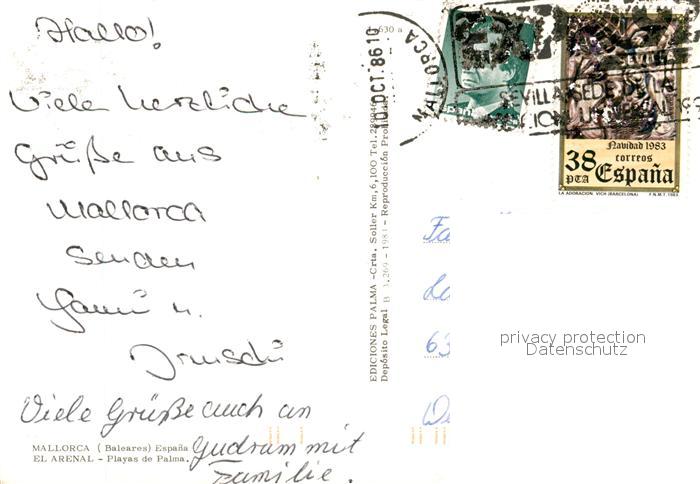 Hallo!
Viele herzliche
Grüße aus
Mallorca
senden
u.
Irmschi
Viele Grüße auch an
Gudrun mit
Familie.
MALLORCA (Baleares) España
EL ARENAL – Playas de Palma.
630 a
EDICIONES PALMA -Crta. Soller Km, 6,100 Tel.
Depósito Legal B 1983 - Reproducción
MALLORCA
10 OCT. 86 10
SEVILLA SEDE DE LA
Navidad 1983
correos
38
PTA España
LA ADORACION. VICH (BARCELONA) F.N.M.T. 1983
Fa
63
privacy protection
Datenschutz